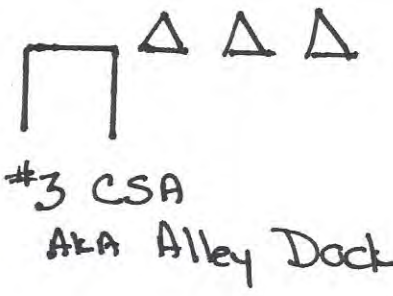 #3 CSA
AKA Alley Dock